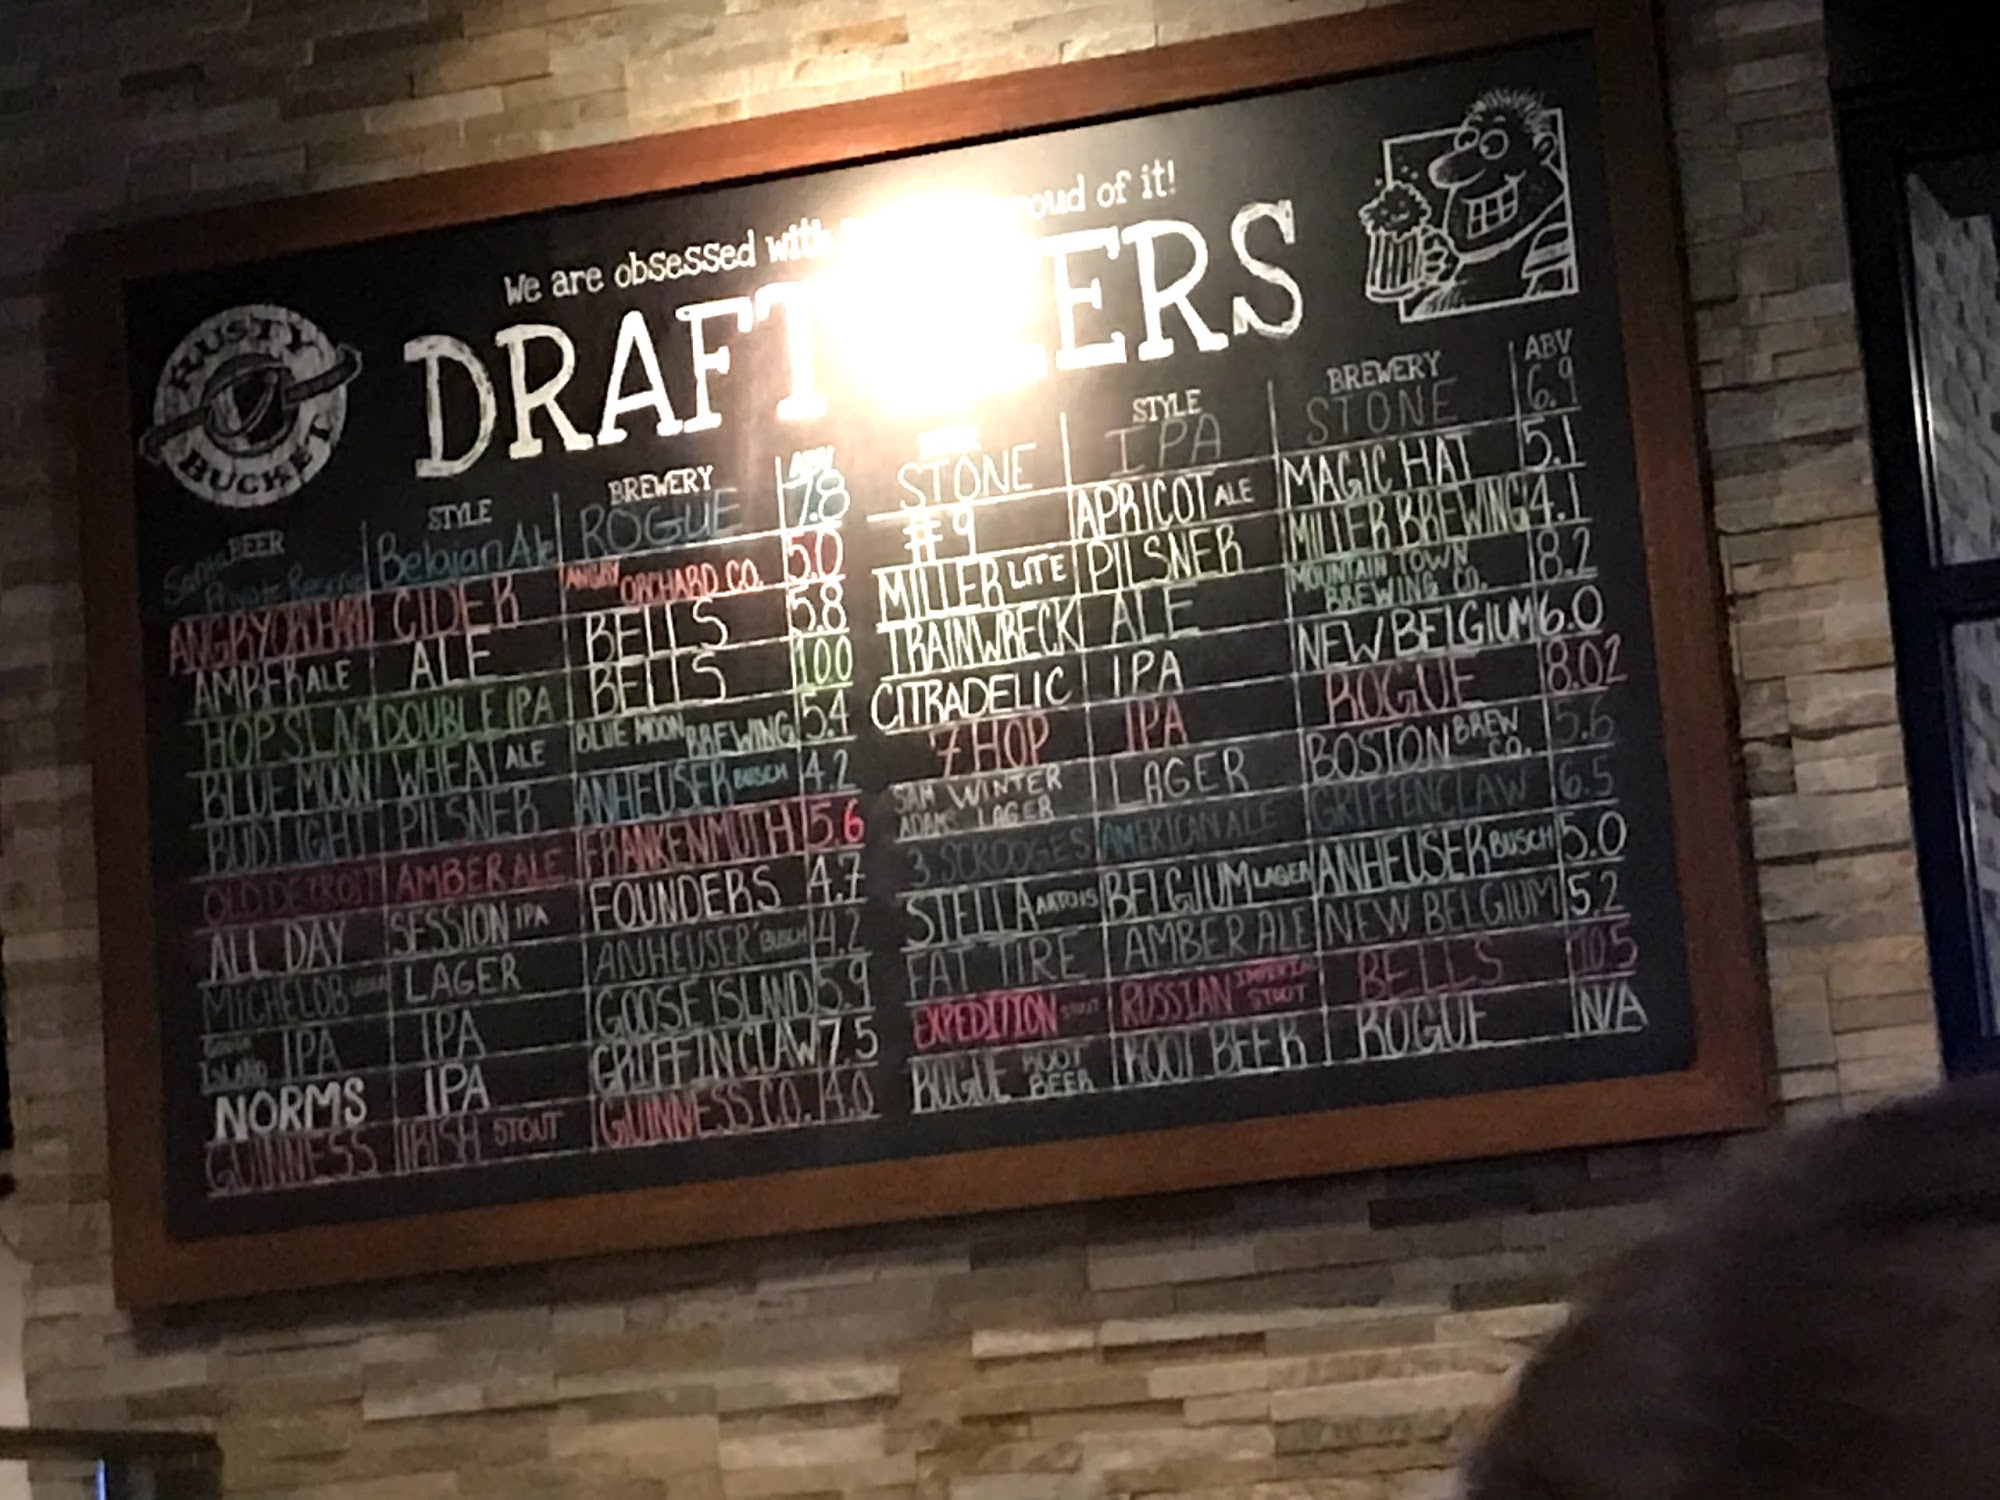 We are obsessed with roud of it!
DRAFT ERS
RUSTY
BUCKET
BEER STYLE BREWERY ABV
Private Reserve Belgian Ale ROGUE 7.8
ANGRY ORCHARD CIDER ANGRY ORCHARD CO. 5.0
AMBER ALE ALE BELLS 5.8
HOP SLAM DOUBLE IPA BELLS 10.0
BLUE MOON WHEAT ALE BLUE MOON BREWING 5.4
BUD LIGHT PILSNER ANHEUSER BUSCH 4.2
OLD DETROIT AMBER ALE FRANKENMUTH 5.6
ALL DAY SESSION IPA FOUNDERS 4.7
MICHELOB LAGER ANHEUSER BUSCH 4.2
ISLAND IPA IPA GOOSE ISLAND 5.9
NORMS IPA GRIFFIN CLAW 7.5
GUINNESS IRISH STOUT GUINNESS CO. 4.0
STYLE BREWERY ABV
STONE IPA STONE 6.9
#9 APRICOT ALE MAGIC HAT 5.1
MILLER LITE PILSNER MILLER BREWING 4.1
TRAINWRECK ALE MOUNTAIN TOWN BREWING CO. 8.2
CITRADELIC IPA NEW BELGIUM 6.0
7 HOP IPA ROGUE 8.02
SAM ADAMS WINTER LAGER LAGER BOSTON BREW CO. 5.6
3 SCROOGES AMERICAN ALE GRIFFENCLAW 6.5
STELLA BELGIUM LAGER ANHEUSER BUSCH 5.0
FAT TIRE AMBER ALE NEW BELGIUM 5.2
EXPEDITION STOUT RUSSIAN IMPERIAL STOUT BELLS 10.5
ROGUE ROOT BEER ROOT BEER ROGUE N/A